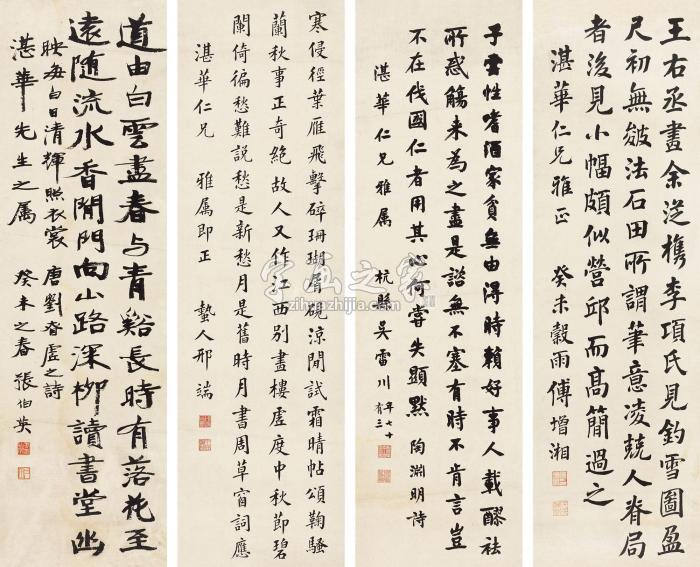 王右丞畫余從檇李項氏見釣雪圖盈
尺初無皴法石田所謂筆意凌兢人脊局
者後見小幅頗似營邱而高簡過之
湛華仁兄雅正 癸未穀雨傅增湘
子雲性嗜酒家貧無由得時賴好事人載醪祛
所惑觴來為之盡是諮無不塞有時不肯言豈
不在伐國仁者用其心何嘗失顯默 陶淵明詩
湛華仁兄雅屬 杭縣吳雷川
年七十
有三
寒侵徑葉雁飛擊碎珊瑚屑硯涼閒試霜晴帖頌鞠騷
蘭秋事正奇絕故人又作江西別書樓虛度中秋節碧
闌倚徧愁難說愁是新愁月是舊時月書周草窗詞應
湛華仁兄 雅屬即正 蟄人邢端
道由白雲盡春与青谿長時有落花至
遠隨流水香閒門向山路深柳讀書堂幽
映每白日清輝照衣裳 唐劉眘虛之詩
湛華先生之屬 癸未之春張伯英
字画之家
zihuazhijia.com